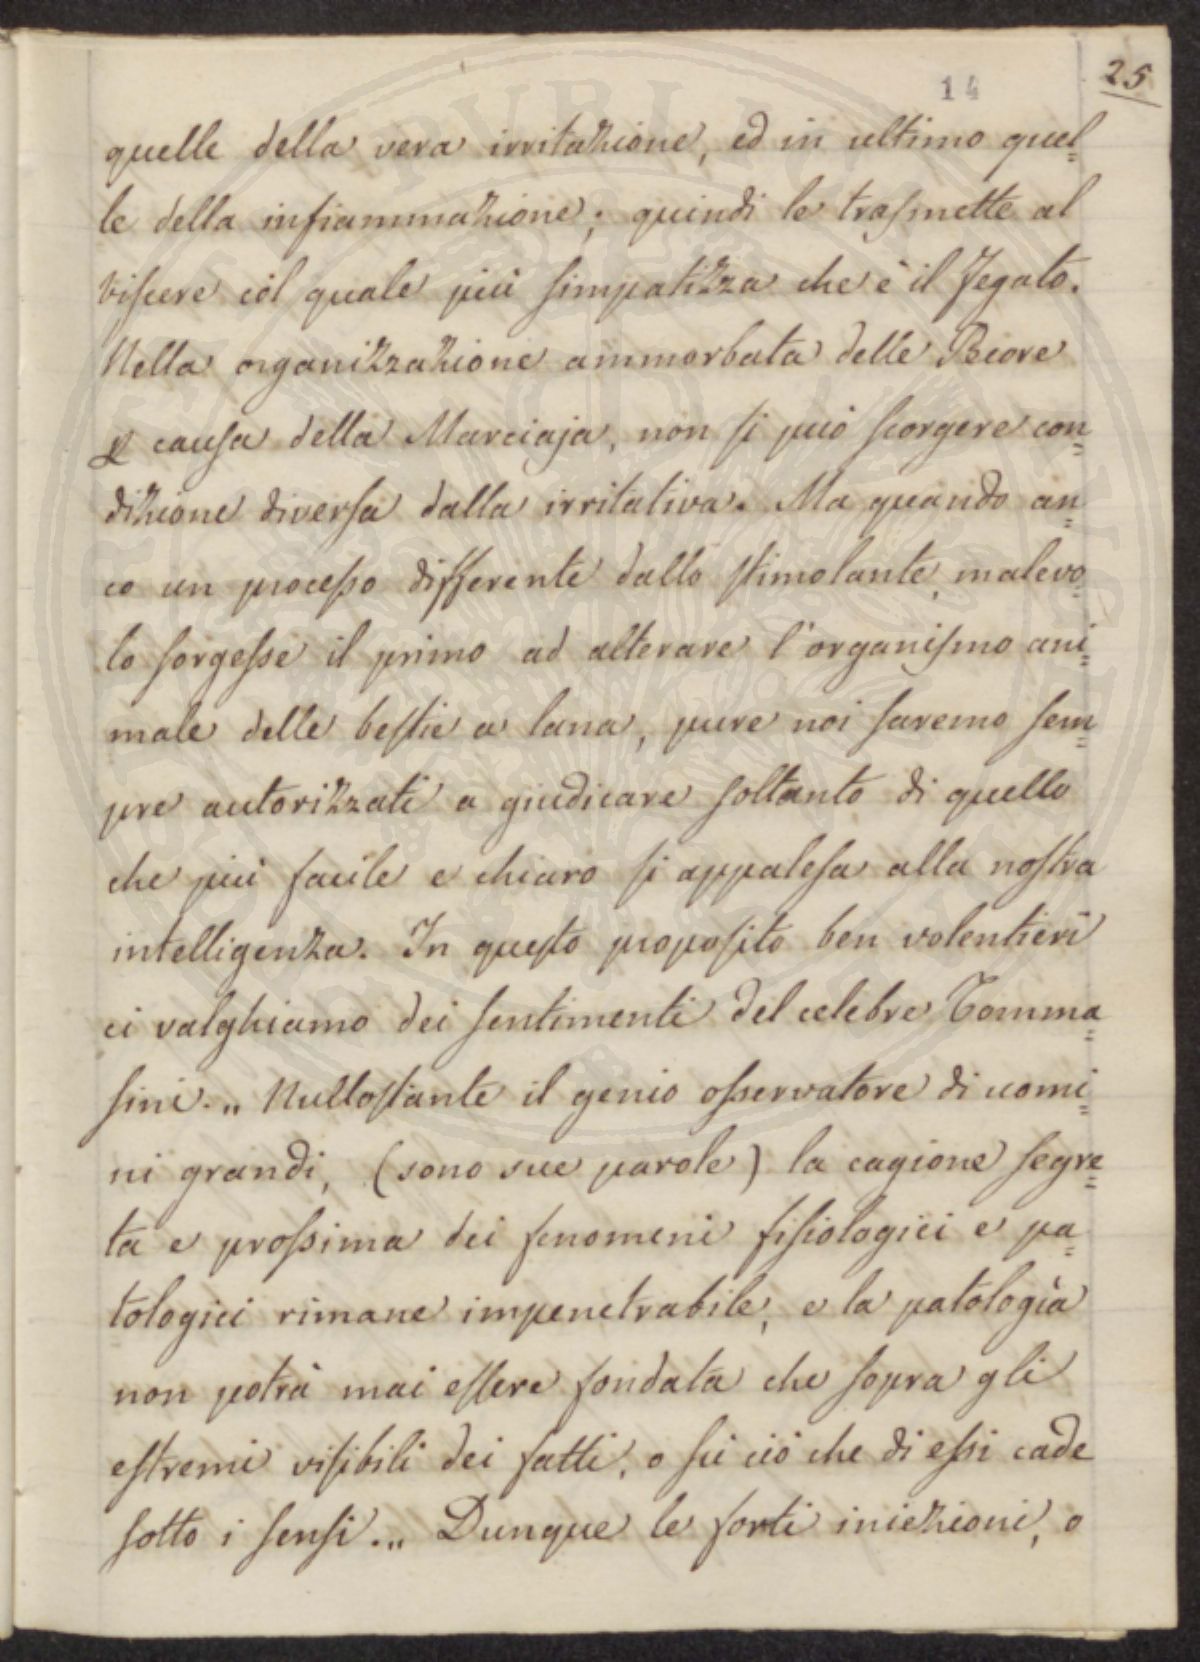 14
25
quelle della vera irritazione, ed in ultimo quel=
le della infiammazione; quindi le trasmette al
viscere col quale più simpatizza che è il Fegato.
Nella organizzazione ammorbata delle Pecore
causa della Marciaja, non si può scorgere con=
dizione diversa dalla irritativa. Ma quando an=
co un processo differente dallo stimolante, malevo=
lo sorgesse il primo ad alterare l'organismo ani=
male delle bestie a lana, pure noi saremo sem=
pre autorizzati a giudicare soltanto di quello
che più facile e chiaro si appalesa alla nostra
intelligenza. In questo proposito ben volentieri
ci valghiamo dei sentimenti del celebre Tomma=
sini. „ Nullostante il genio osservatore di uomi=
ni grandi, (sono sue parole) la cagione segre=
ta e prossima dei fenomeni fisiologici e pa=
tologici rimane impenetrabile, e la patologìa
non potrà mai essere fondata che sopra gli
estremi visibili dei fatti, o su ciò che di essi cade
sotto i sensi. „ Dunque le forti iniezioni, o